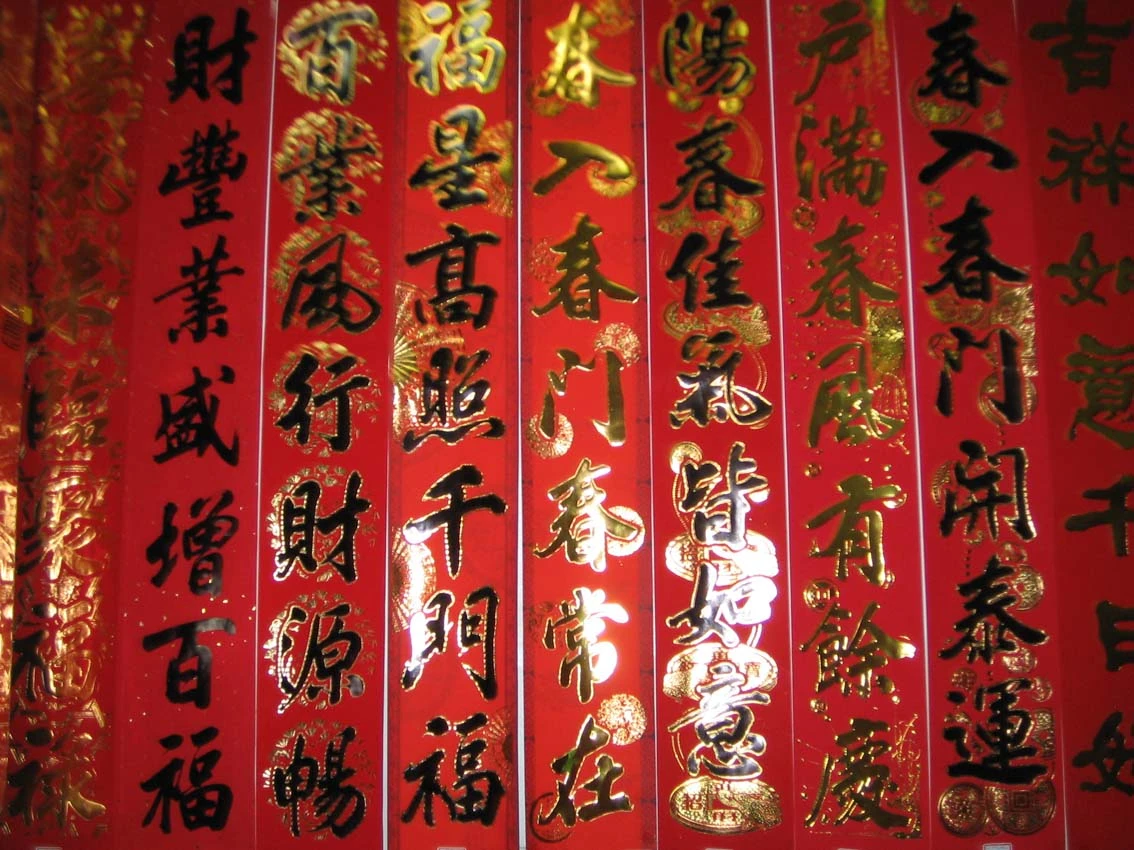 吉祥如意千日好
春入春門開泰運
戶滿春風有餘慶
陽春佳氣皆如意
春入春門春常在
福星高照千門福
百業風行財源暢
財豐業盛增百福
來臨福祿